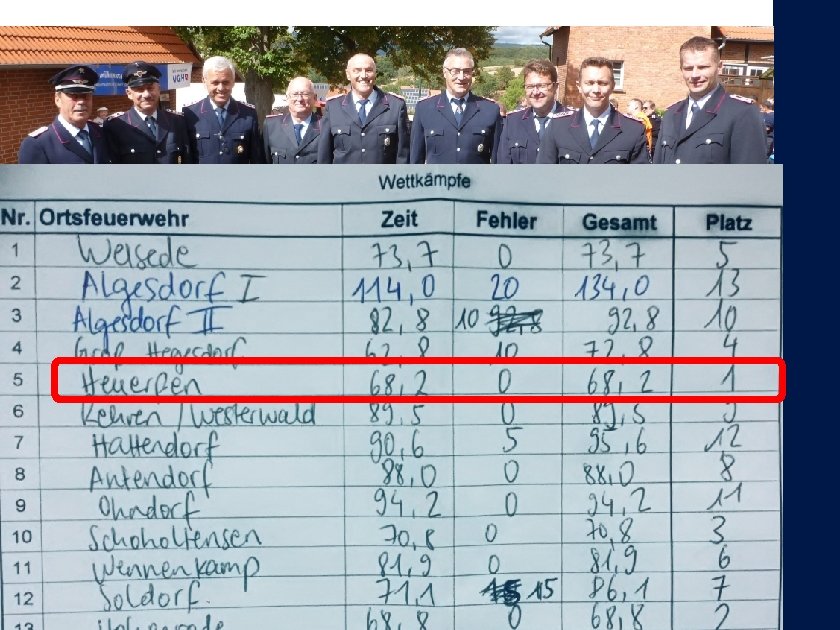 Wettkämpfe
Nr. Ortsfeuerwehr Zeit Fehler Gesamt Platz
1 Welsede 73,7 0 73,7 5
2 Algesdorf I 114,0 20 134,0 13
3 Algesdorf II 82,8 10 92,8 10
4 Groß Hegesdorf 62,8 10 72,8 4
5 Heuerßen 68,2 0 68,2 1
6 Kehren/Westerwald 89,5 0 89,5 9
7 Hattendorf 90,6 5 95,6 12
8 Antendorf 88,0 0 88,0 8
9 Ohndorf 94,2 0 94,2 11
10 Schoholtensen 70,8 0 70,8 3
11 Wennenkamp 81,9 0 81,9 6
12 Soldorf. 71,1 15 86,1 7
13 68,8 0 68,8 2